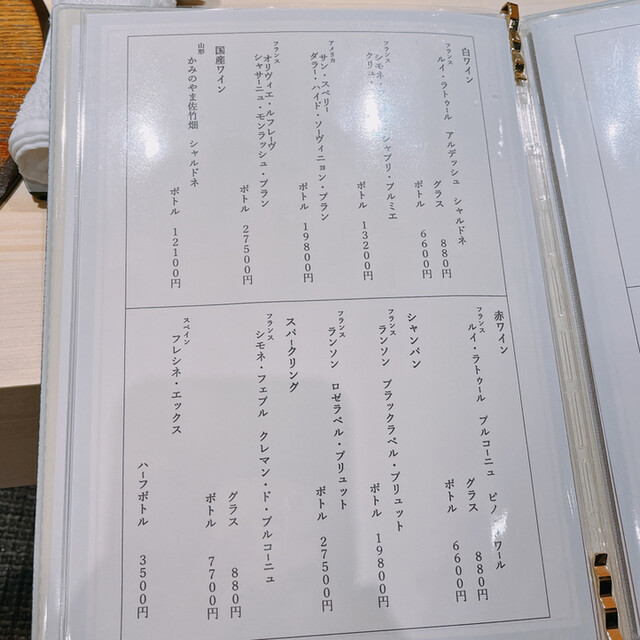 白ワイン
フランス
ルイ・ラトゥール アルデッシュ シャルドネ
グラス 880円
ボトル 6600円
フランス
シモネ・ シャブリ・プルミエ
クリュ・
ボトル 13200円
アメリカ
サン・スペリー
ダラー・ハイド・ソーヴィニョン・ブラン
ボトル 19800円
フランス
オリヴィエ・ルフレーヴ
シャサーニュ・モンラッシュ・ブラン
ボトル 27500円
国産ワイン
山形
かみのやま佐竹畑 シャルドネ
ボトル 12100円
赤ワイン
フランス
ルイ・ラトゥール ブルゴーニュ ピノ ワール
グラス 880円
ボトル 6600円
シャンパン
フランス
ランソン ブラックラベル・ブリュット
ボトル 19800円
フランス
ランソン ロゼラベル・ブリュット
ボトル 27500円
スパークリング
フランス
シモネ・フェブル クレマン・ド・ブルゴーニュ
グラス 880円
ボトル 7700円
スペイン
フレシネ・エックス
ハーフボトル 3500円